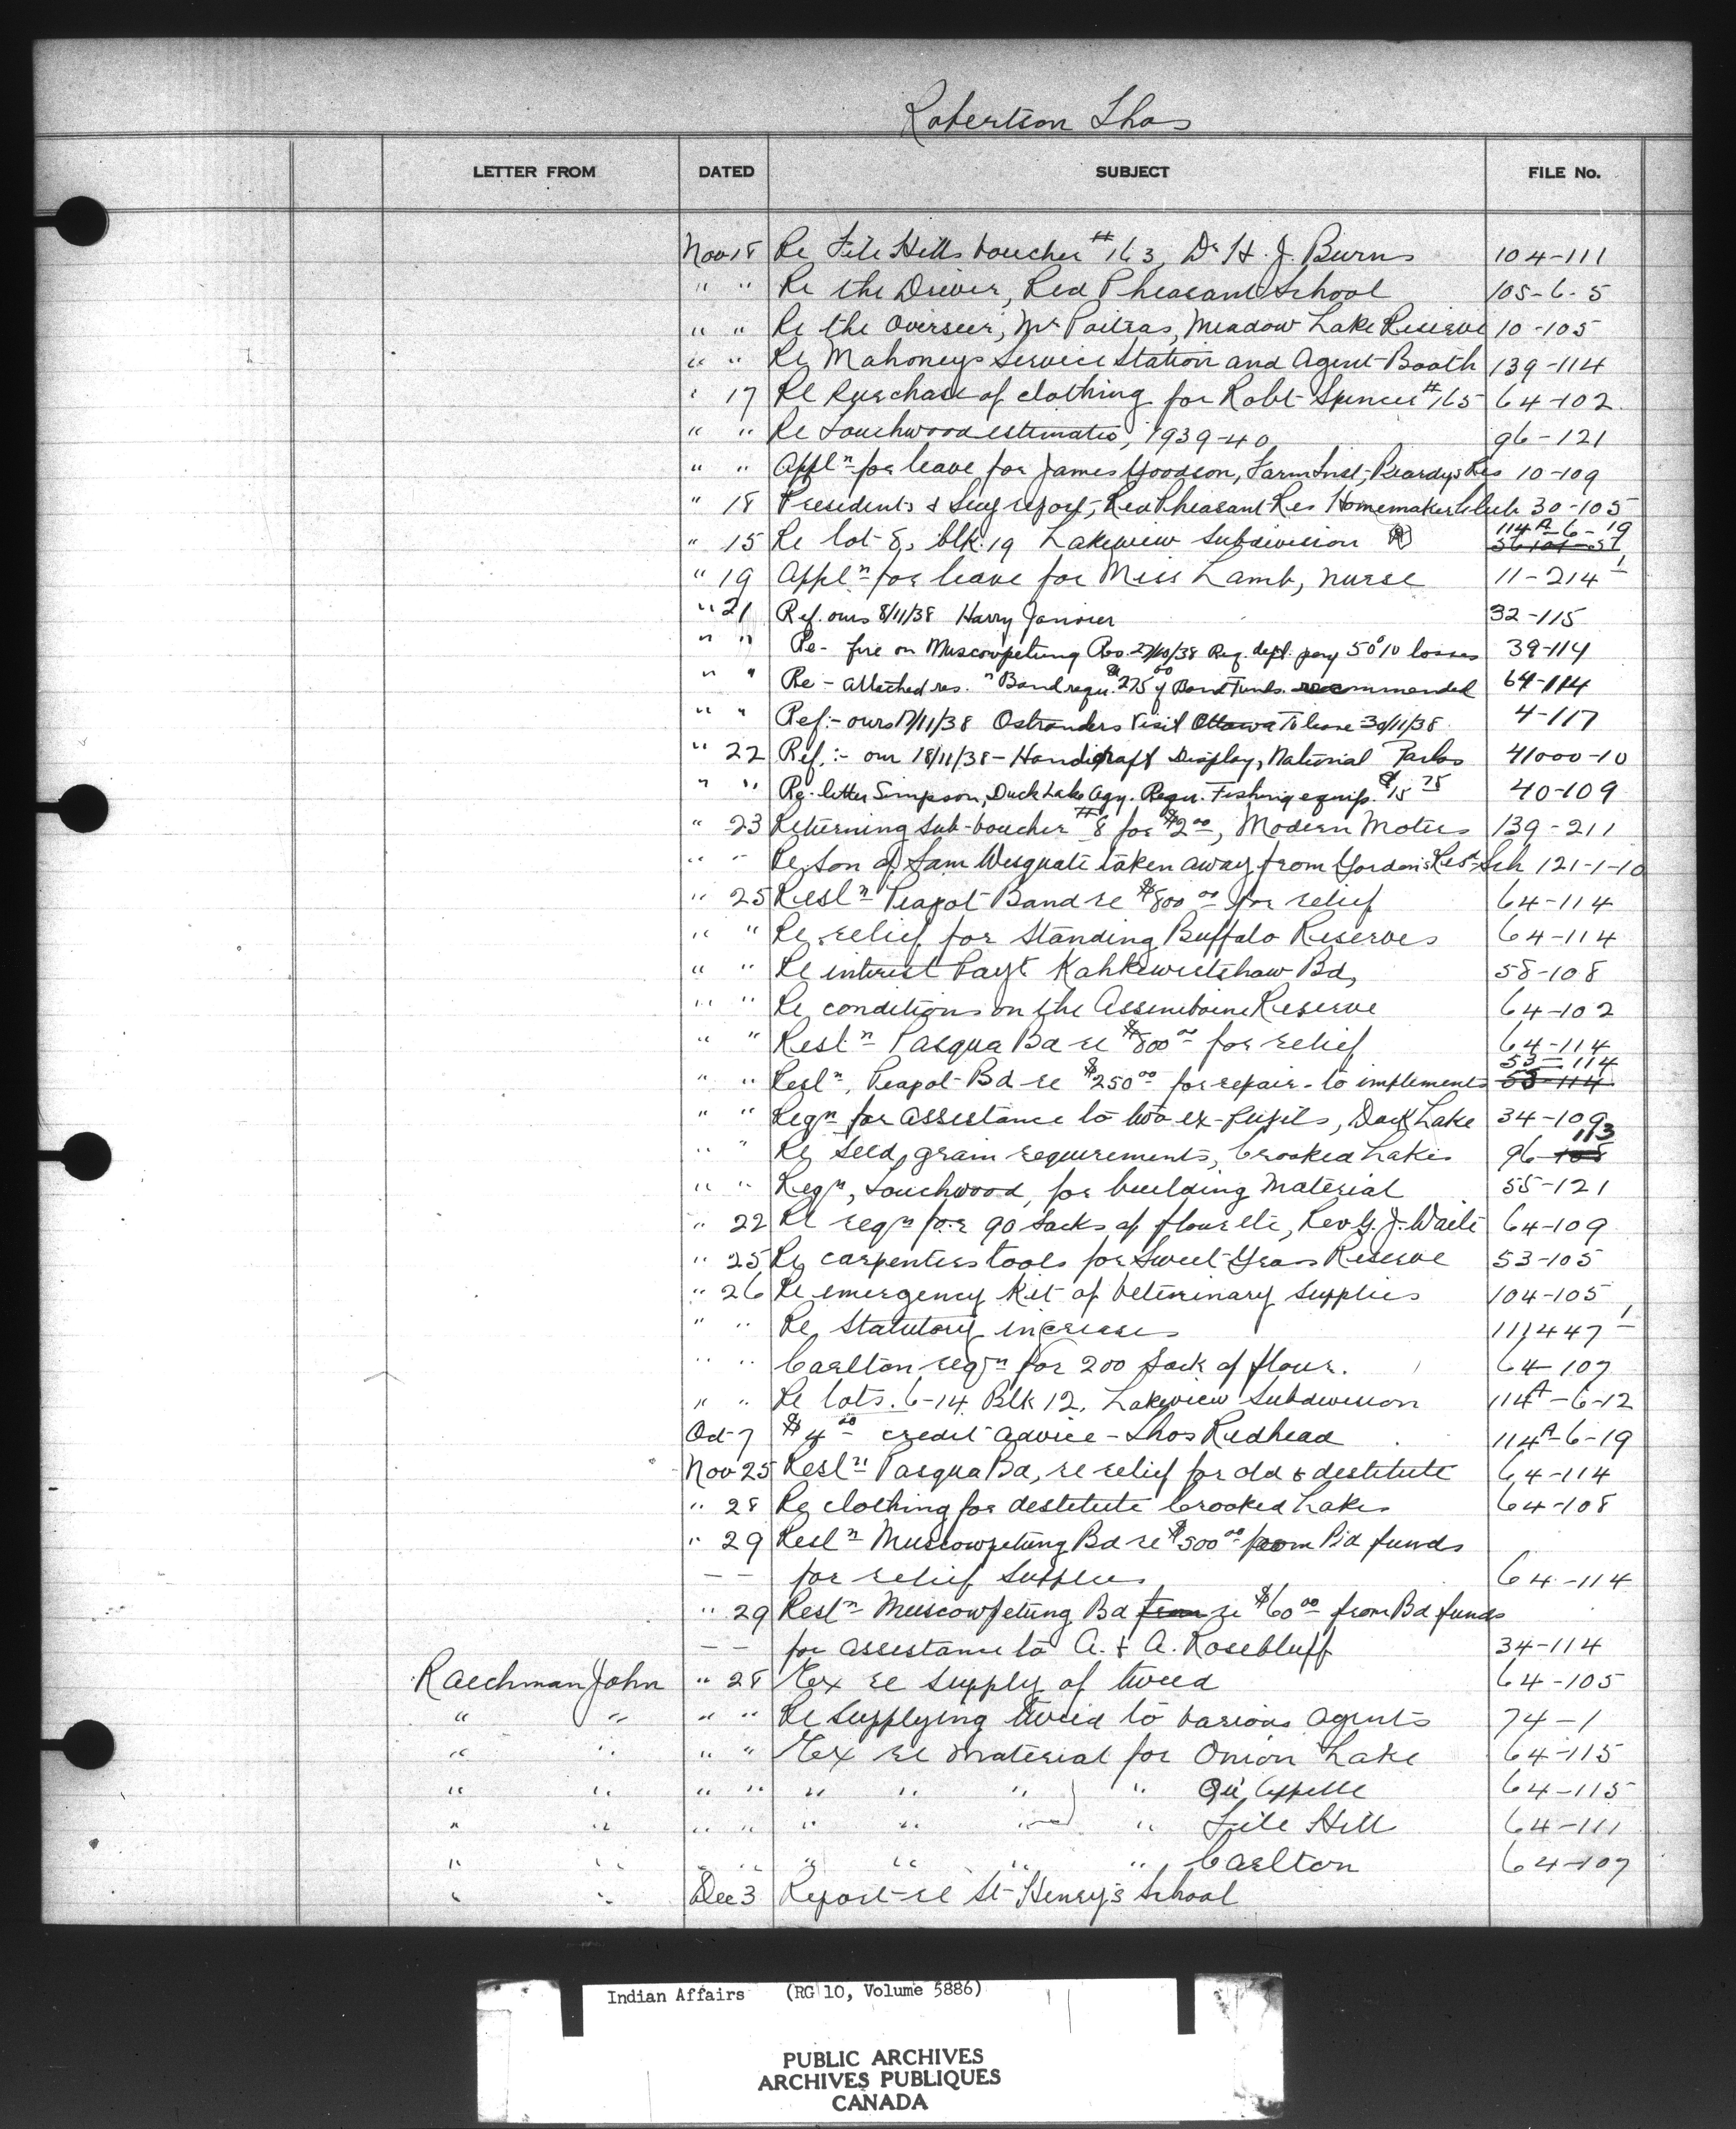 Robertson Thos
LETTER FROM DATED SUBJECT FILE No.
Nov 18 Re File Hills Voucher #163, Dr H. J. Burns 104-111
" " Re the Driver, Red Pheasant School 105-6-5
" " Re the Overseer, Mr Poitras, Meadow Lake Reserve 10-105
" " Re Mahoneys Service Station and Agent Booth 139-114
" 17 Re Purchase of clothing for Robt Spencer #165 64-102
" " Re Touchwood estimates, 1939-40 96-121
" " Appln for leave for James Goodson, Farm Inst, Beardys Res 10-109
" 18 Presidents & Secy report, Red Pheasant Res Homemakers Club 30-105
" 15 Re lot 8, blk.19 Lakeview Subdivision 114A-6-19
" 19 Appln for leave for Miss Lamb, nurse 11-214-1
" 21 Ref. ours 8/11/38 Harry Janvier 32-115
" " Re - fire on Muscowpetung Res. 27/10/38 Req. dept. pay 50% losses 39-114
" " Re - attached res. " Band requ. $275 00 of Band Funds. recommended 64-114
" " Ref:- ours 17/11/38 Ostranders Visit Ottawa To leave 30/11/38 4-117
" 22 Ref:- our 18/11/38 - Handicraft Display, National Parks 41000-10
" " Re- letter Simpson, Duck Lake Agy. Requ. Fishing equip. $15 75 40-109
" 23 Returning Sub-voucher #8 for $2 00, Modern Motors 139-211
" " Re Son of Sam Wesquate taken away from Gordon's Res Sch 121-1-10
" 25 Resln Peapot Band re $800 00 for relief 64-114
" " Re relief for Standing Buffalo Reserves 64-114
" " Re interest Payt Kahkewistahaw Bd, 58-108
" " Re conditions on the Assiniboine Reserve 64-102
" " Resln Pasqua Bd re $800 00 for relief 64-114
" " Resln, Peapot Bd re $250 00 for repairs to implements 53-114 53-114
" " Reqn for assistance to two ex-pupils, Duck Lake 34-109
" " Re Seed grain requirements, Crooked Lakes 96-113
" " Reqn, Touchwood, for building material 55-121
" 22 Re reqn for 90 Sacks of flour etc, Rev G. J. Waite 64-109
" 25 Re carpenters tools for Sweet Grass Reserve 53-105
" 26 Re emergency Kit of Veterinary Supplies 104-105
" " Re Statutory increases 111447-1
" " Carlton reqn for 200 Sack of flour. 64-107
" " Re lots. 6-14 Blk 12, Lakeview Subdivision 114A-6-12
Oct 7 $4 00 credit advice - Thos Redhead 114A-6-19
Nov 25 Resln Pasqua Bd, re relief for old & destitute 64-114
" 28 Re clothing for destitute Crooked Lakes 64-108
" 29 Resln Muscowpetung Bd re $500 00 from Bd funds
-- for relief Supplies 64-114
" 29 Resln Muscowpetung Bd from re $60 00 from Bd funds
-- for assistance to A. & A. Rosebluff 34-114
Raechman John " 28 Ex re Supply of tweed 64-105
" " " " Re Supplying tweed to various agents 74-1
" " " " Ex re material for Onion Lake 64-115
" " " " " " " " Qu'Appelle 64-115
" " " " " " " " File Hill 64-111
" " " " " " " " Carlton 64-107
" " Dec 3 Report re St Henry's School
Indian Affairs (RG 10, Volume 5886)
PUBLIC ARCHIVES
ARCHIVES PUBLIQUES
CANADA